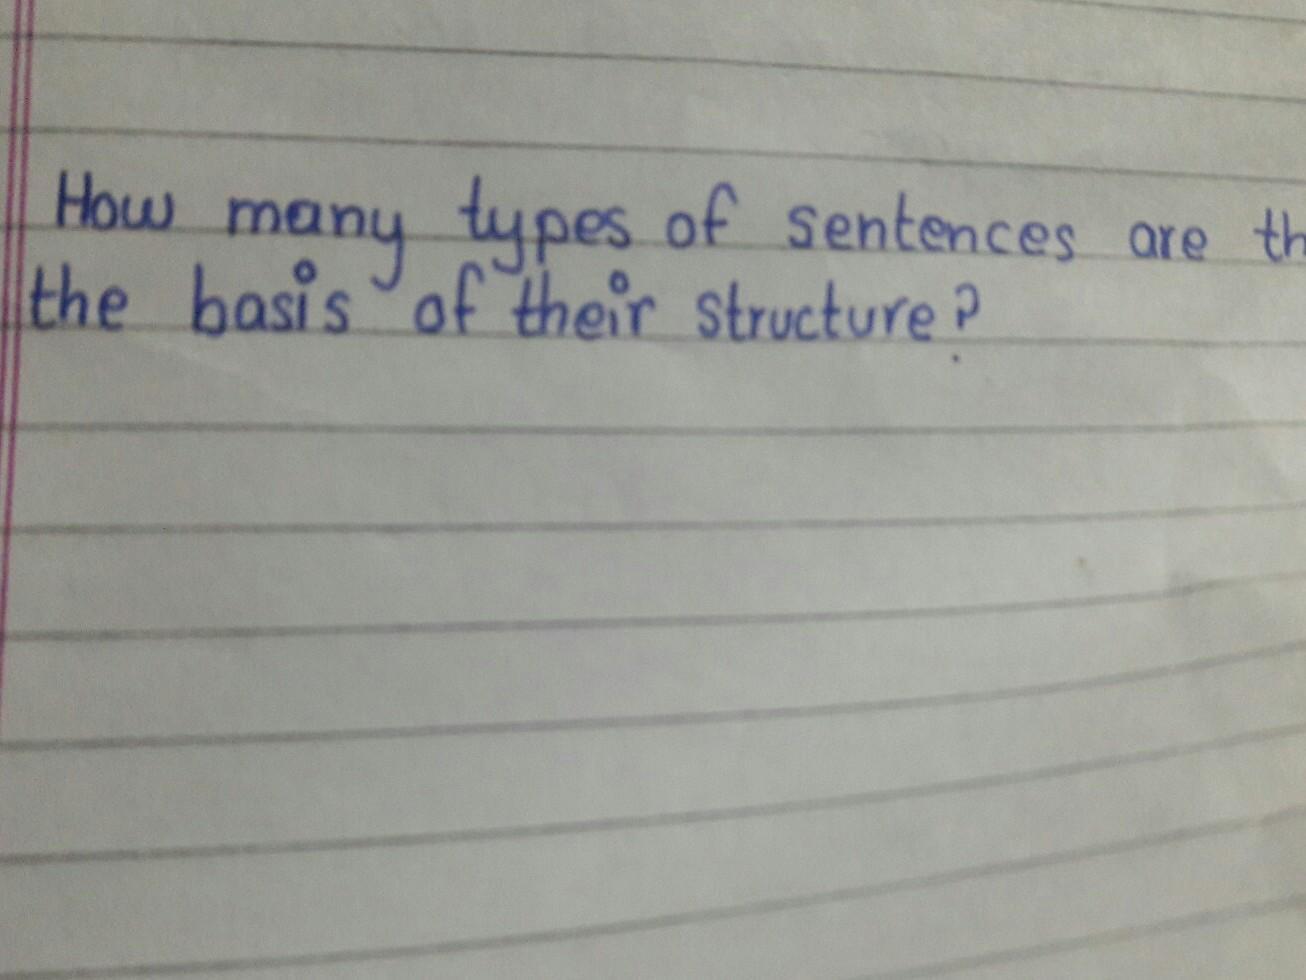 How many types of sentences are th
the basis of their structure?